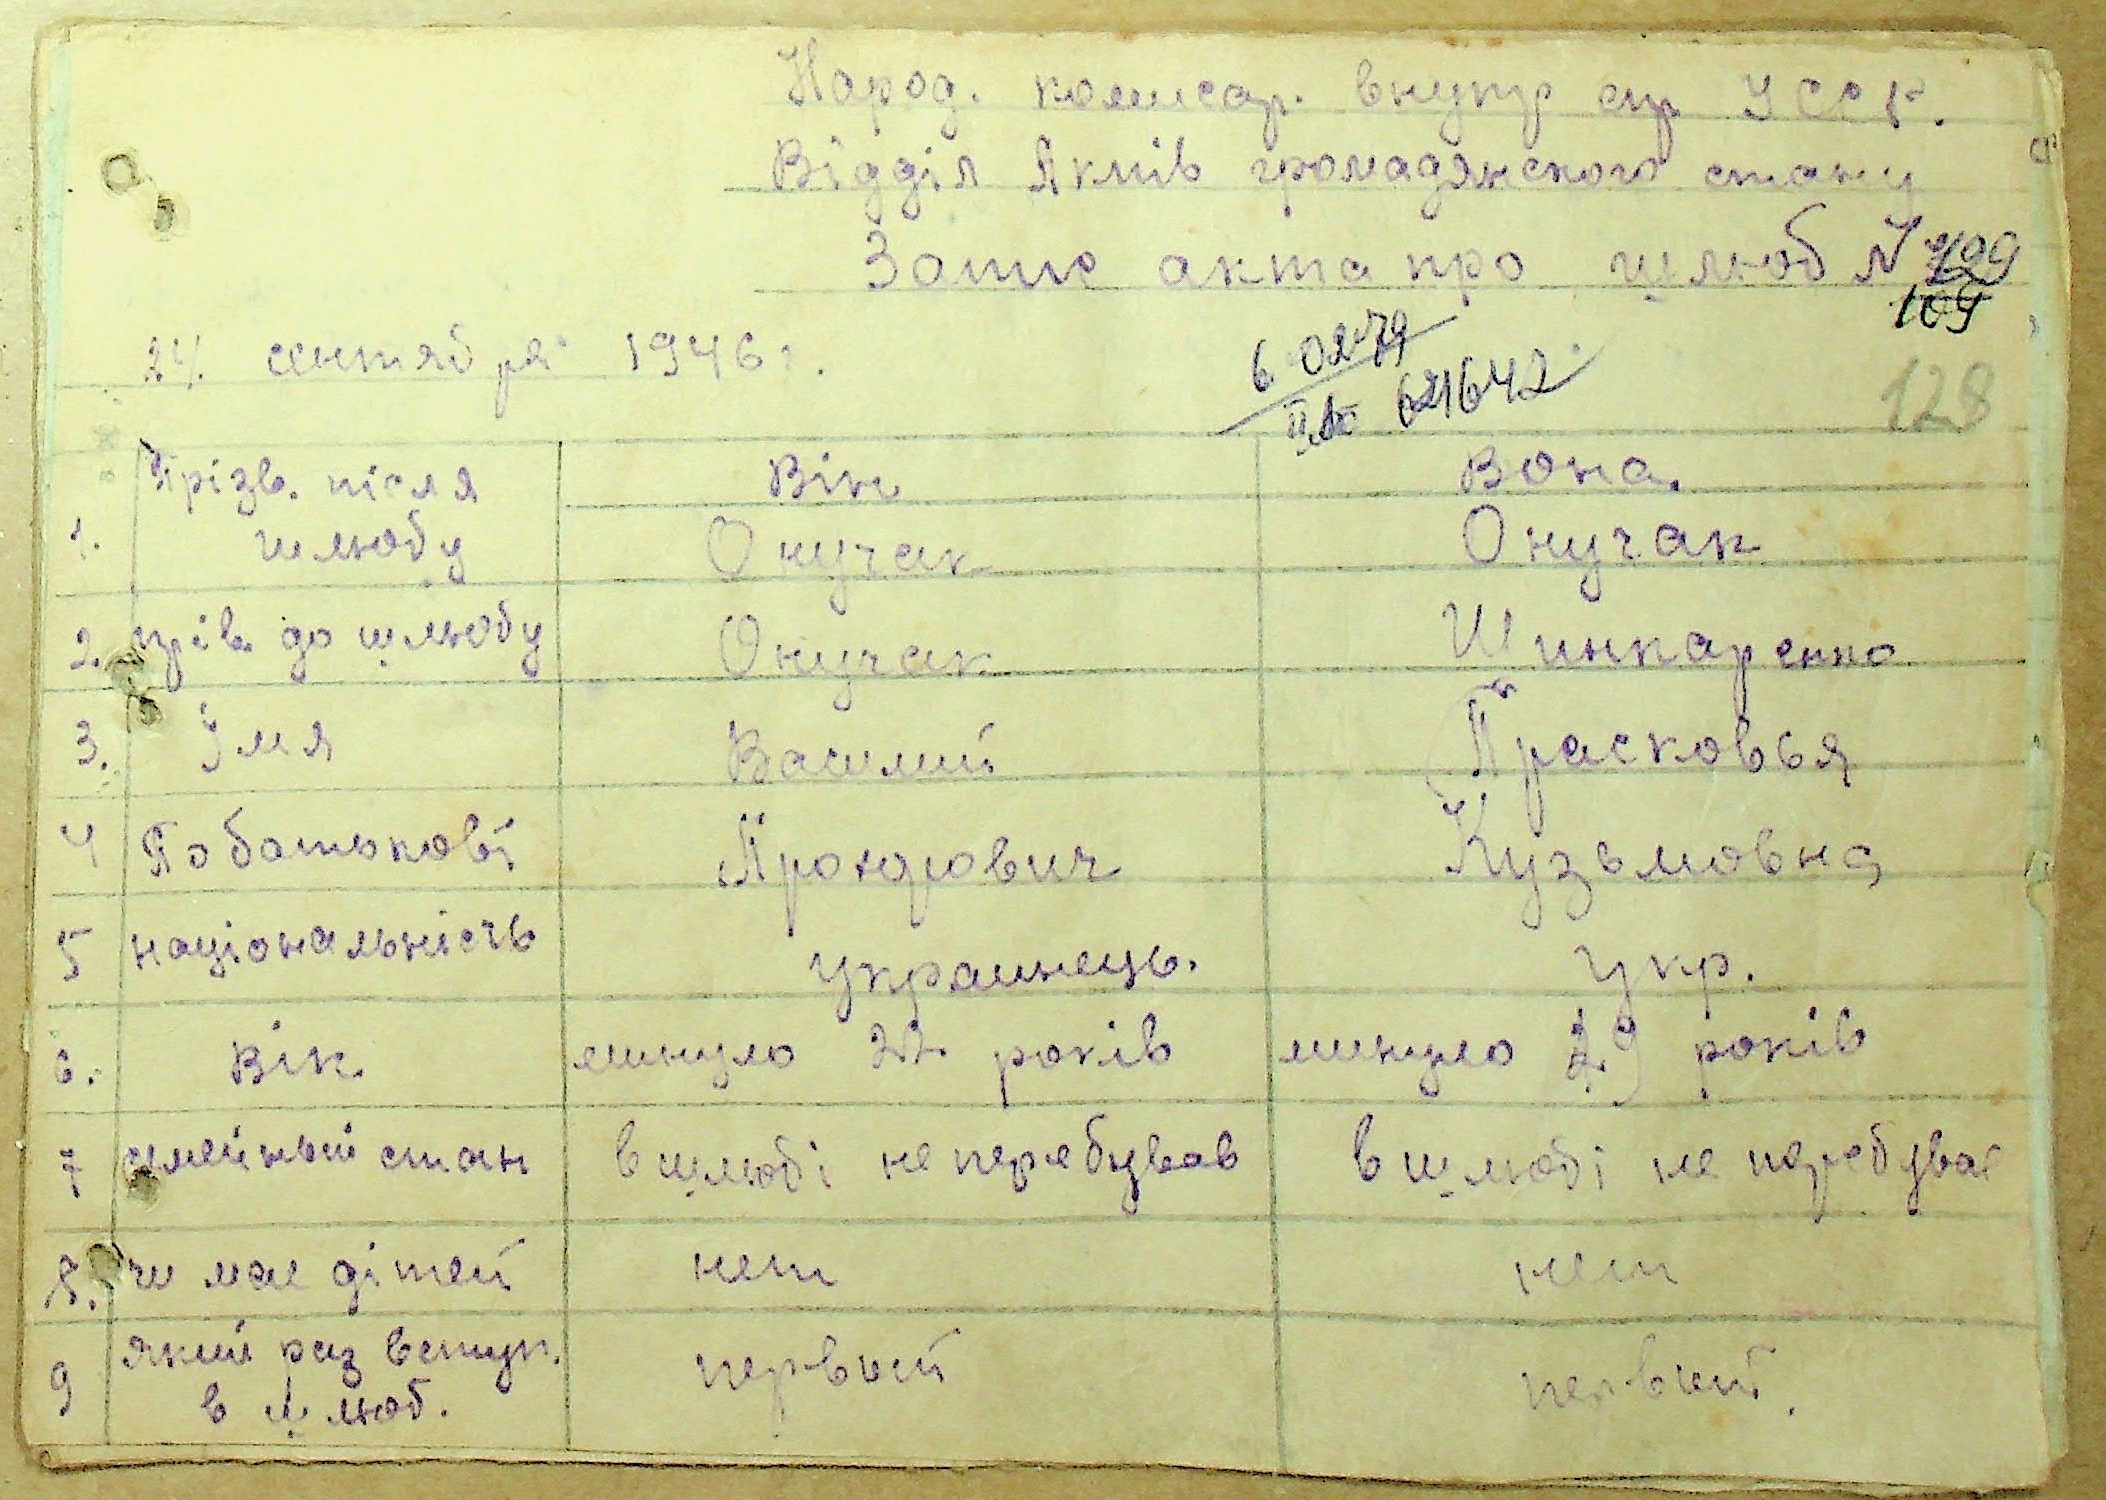 Народ. комисар. внутр спр УССР.
Відділ Актів громадянского стану
Запис акта про шлюб №
109
24 сентября 1946 г.
6 02 79
621642
128
Прізв. після Він Вона.
1. шлюбу Онучак Онучак
2. прів. до шлюбу Онучак Шинкаренко
3. Імя Василий Прасковья
4 По батькові Кузьмовна
5 національність украинець. укр.
6. Вік минуло 22 років минуло 29 років
7 симейный стан в шлюбі не перебував в шлюбі не перебував
8. чи мае дітей нет нет
9 який раз вступ. первый первый.
в шлюб.